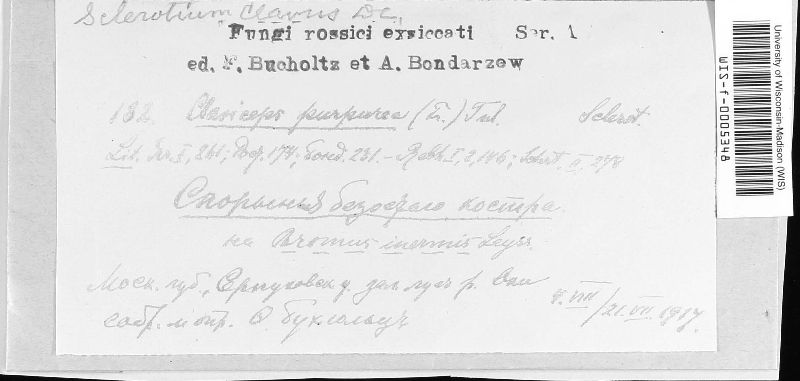 Sclerotium clavus DC.
Fungi rossici exsiccati Ser. A
ed. F. Bucholtz et A. Bondarzew
132. Claviceps purpurea (Fr.) Tul. Sclerot.
Lit. I, 241; 174; Bond. 231. - Rabh. I, 2, 146; Schröt. II, 278
Спорынья безостаго костра.
на Bromus inermis Leyss.
Моск. губ., Серпуховск. у. зал. луг р. Оки 8. VIII / 21. VII. 1917.
собр. и опр. Ѳ. Бухгольцъ
University of Wisconsin-Madison (WIS)
WIS-f-0005348